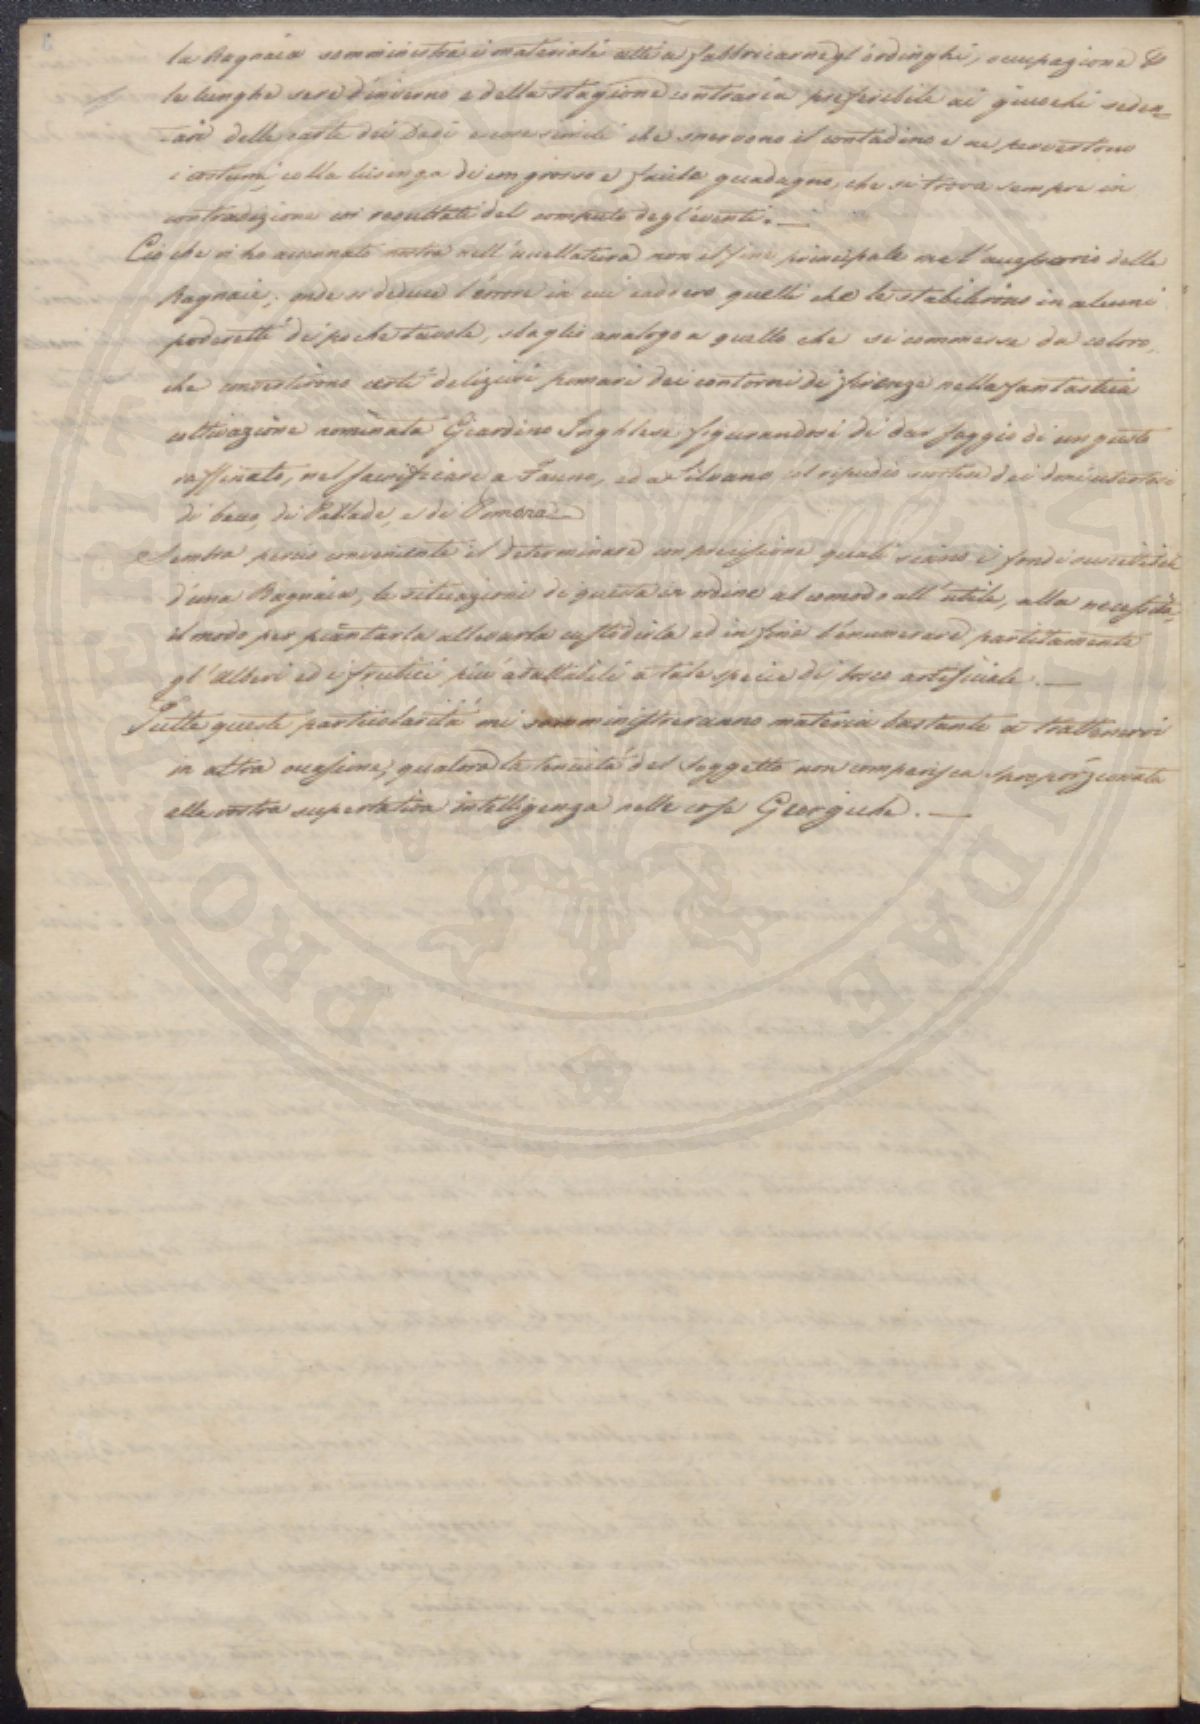 la Ragnaia somministra i materiali atti a fabbricarne gl'ordinghi, occupazione p
le lunghe sere d'inverno e della stagione contraria preferibile ai giuochi seden=
=tari delle carte dei Dadi e cose simili che snervono il contadino e ne pervertono
i costumi, colla lusinga di un grosso e facile guadagno, che si trova sempre in
contradizione coi resultati del computo degl'eventi. —
Ciò che vi ho accennato mostra nell'uccellatura non il fine principale ma l' delle
Ragnaie; onde si deduce l'errore in cui caddero quelli che le stabilirono in alcuni
poderetti di poche tavole, sbaglio analogo a quello che si commesse da coloro,
che convertirono certi deliziosi pomari dei contorni di firenze nella fantastica
coltivazione nominata Giardino Inghlese figurandosi di dar saggio di un gusto
raffinato, nel sacrificare a Fauno, ed a Silvano col ripudio dei doni
di bacco, di Pallade, e di Pomona —
Sembra perciò conveniente il determinare con precisione quali siano i fondi suscettibili
d'una Ragnaia, le situazioni di questa in ordine al comodo all'utile, alla necessità=
il modo per piantarla allevarla custodirla ed in fine l'enumerare partitamente
gl'alberi ed i frutici più adattabili a tale specie di bosco artificiale. —
Tutte queste particolarità mi somministreranno materia bastante a trattenervi
in altra occasione, qualora la tenuità del soggetto non comparisca sproporzionata
alla vostra superlativa intelligenza nelle cose Georgiche. —
PROSPERITATI PUBLICAE AUGENDAE